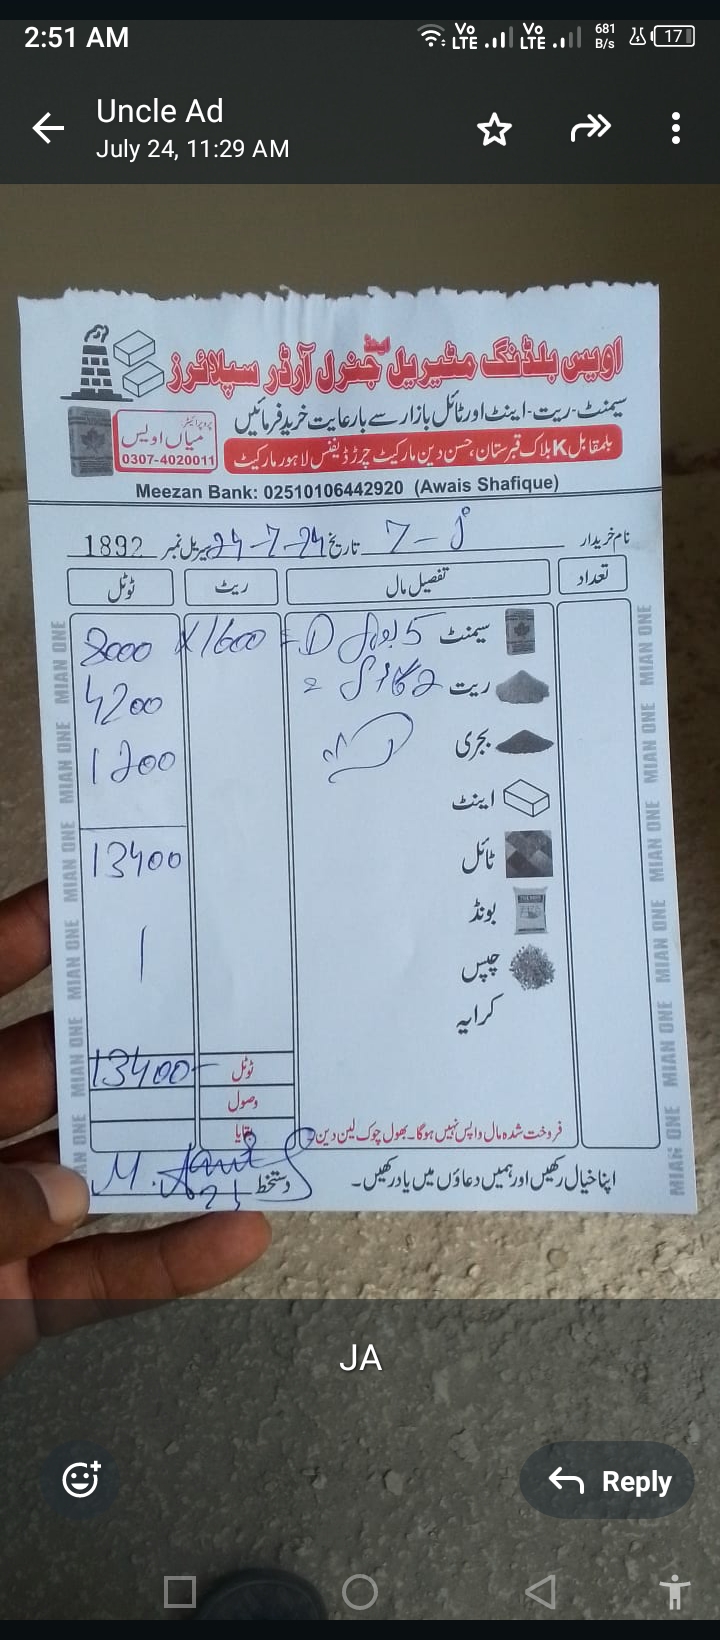 2:51 AM
Vo LTE Vo LTE 681 B/s 17
Uncle Ad
July 24, 11:29 AM
اویس بلڈنگ مٹیریل اینڈ جنرل آرڈر سپلائرز
سیمنٹ-ریت-اینٹ اور ٹائل بازار سے بارعایت خرید فرمائیں
پروپرائیٹر
میاں اویس
0307-4020011
بلمقابل K بلاک قبرستان، حسن دین مارکیٹ چرڑ ڈیفنس لاہور مارکیٹ
Meezan Bank: 02510106442920 (Awais Shafique)
نام خریدار تاریخ 24-7-24 سیریل نمبر 1892
تعداد تفصیل مال ریٹ ٹوٹل
سیمنٹ 5 1600 8000
ریت 2 4200
بجری 1200
اینٹ
ٹائل 13400
بونڈ
چپس
کرایہ
ٹوٹل 13400
وصول
بقایا
فروخت شدہ مال واپس نہیں ہوگا۔ بھول چوک لین دین
دستخط
اپنا خیال رکھیں اور ہمیں دعاؤں میں یاد رکھیں۔
MIAN ONE MIAN ONE MIAN ONE MIAN ONE MIAN ONE MIAN ONE
MIAN ONE MIAN ONE MIAN ONE MIAN ONE MIAN ONE MIAN ONE
JA
Reply